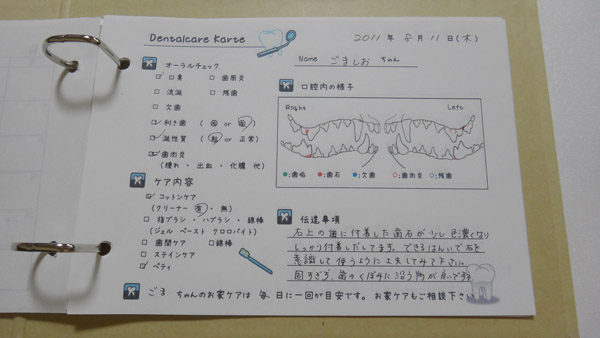 Dentalcare Karte
2011年 8月 11日(木)
Name ごましお ちゃん
オーラルチェック
口臭 歯周炎
流涎 残歯
欠歯
利き歯 ( 右 or 左 )
涎性質 ( 粘 or 正常 )
歯肉炎
(腫れ・出血・化膿 他)
ケア内容
コットンケア
(クリーナー 有・無)
指ブラシ・ハブラシ・綿棒
(ジェル ペースト クロロバイト)
歯間ケア 綿棒
ステインケア
ペティ
口腔内の様子
Right Left
:歯垢 :歯石 :欠歯 :歯肉炎 :残歯
伝達事項
右上の歯に付着した歯石が少し色濃くなり
しっかり付着しだしてます。できるはんいで右を
意識して使うように工夫してみて下さい。
固すぎず、歯のくぼみに沿う物が良いです
ごま ちゃんのお家ケアは 毎 日に一回が目安です。お家ケアもご相談下さい